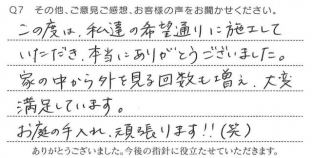 Q7 その他、ご意見ご感想、お客様の声をお聞かせください。
この度は、私達の希望通りに施工して
いただき、本当にありがとうございました。
家の中から外を見る回数も増え、大変
満足しています。
お庭の手入れ、頑張ります!!(笑)
ありがとうございました。今後の指針に役立たせていただきます。